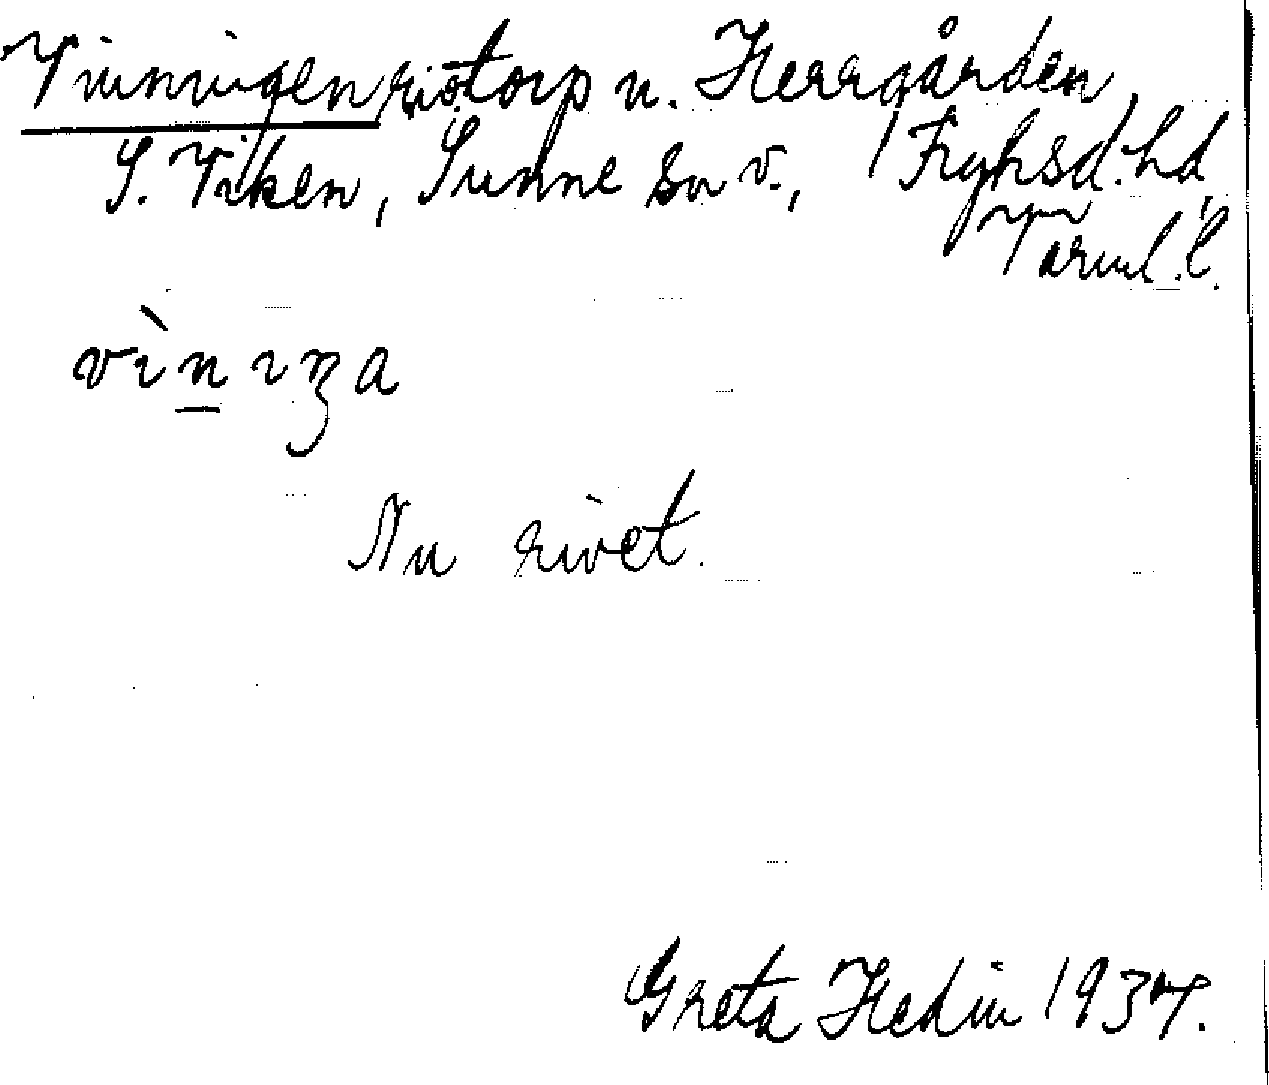 Vinningen, ristorp u. Herrgården,
S. Viken, Sunne sn v., Fryksd. hd,
Värml. l.
vìn ıŋa
Nu rivet.
Greta Hedin 1937.